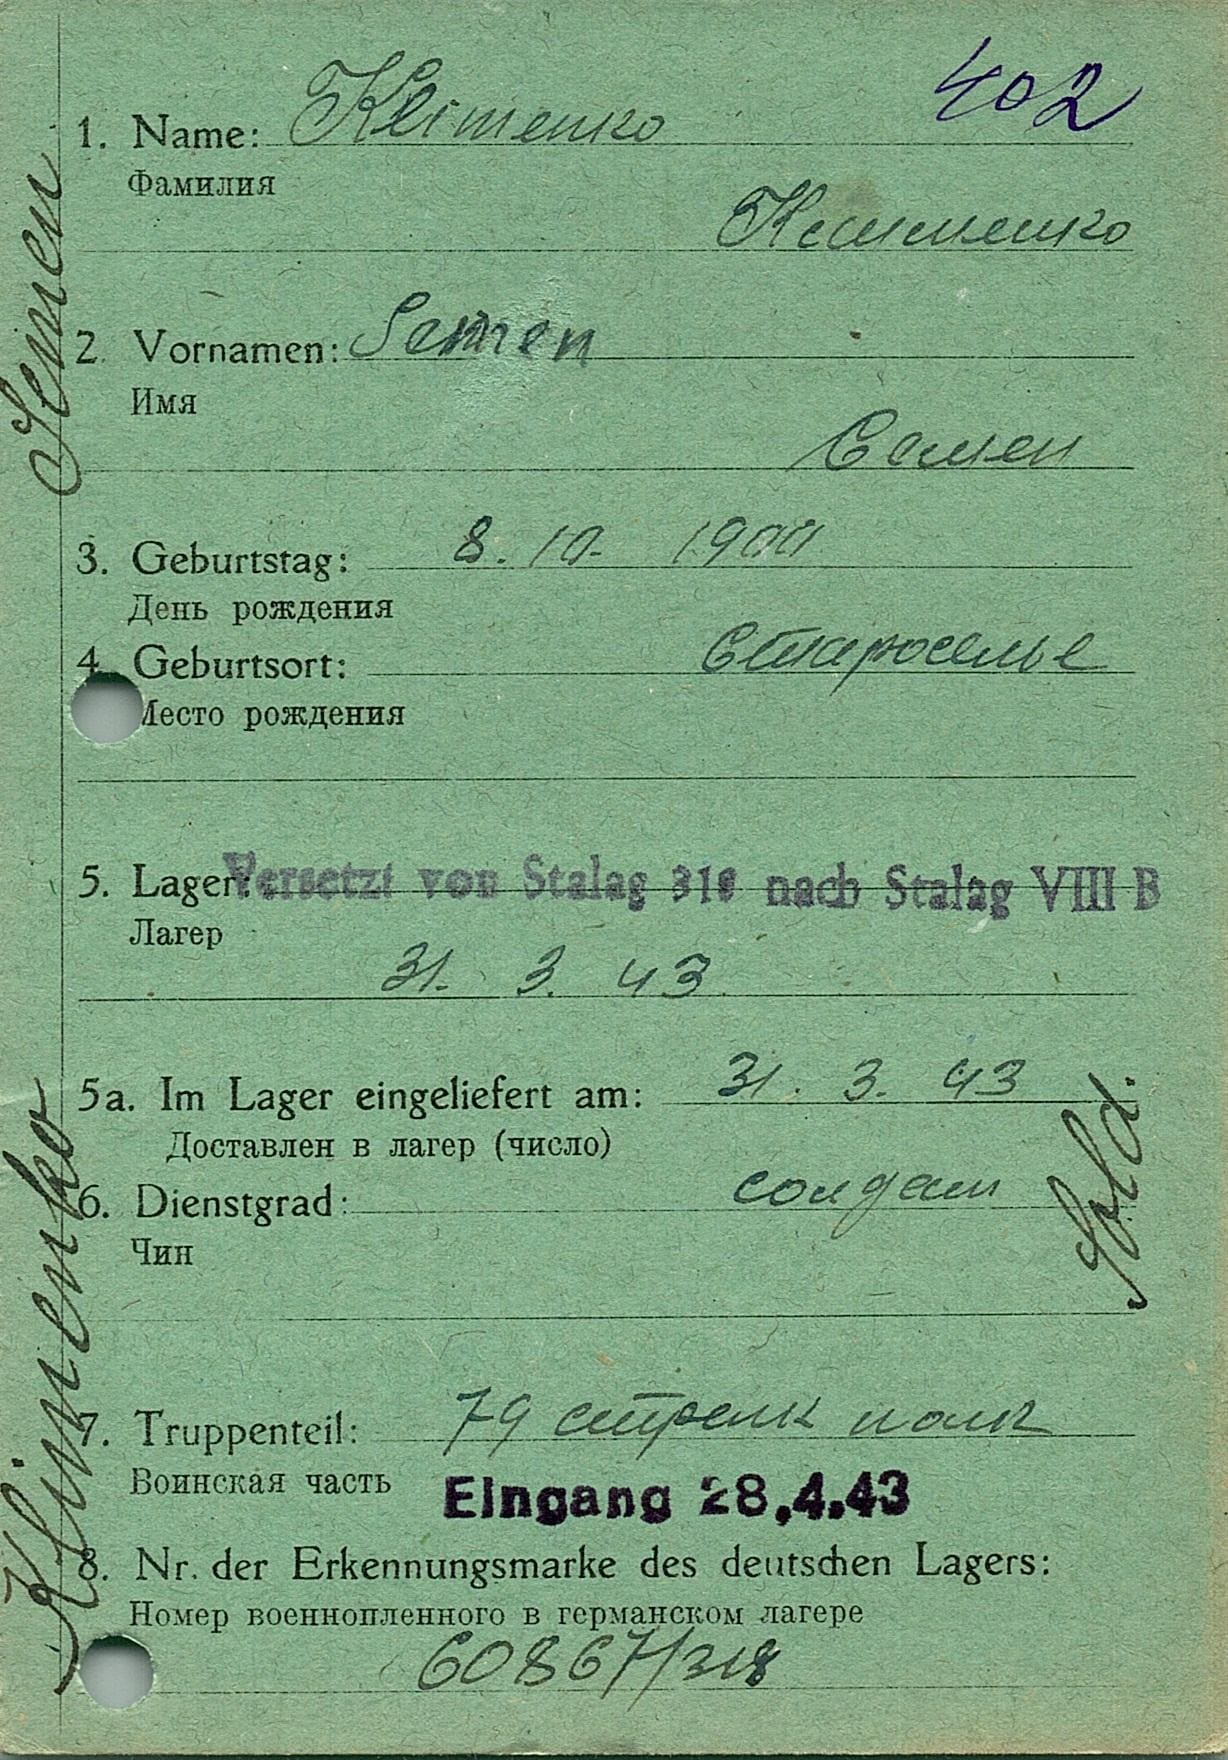 402
1. Name: Klimenko
Фамилия
Клименко
2. Vornamen: Semen
Имя
Семен
3. Geburtstag: 8. 10. 1900
День рождения
4. Geburtsort: Староселье
Место рождения
5. Lager: Versetzt von Stalag 318 nach Stalag VIII B
Лагер
31. 3. 43
5a. Im Lager eingeliefert am: 31. 3. 43
Доставлен в лагер (число)
6. Dienstgrad: солдат
Чин
Sold.
7. Truppenteil: 79 стрелк полк
Воинская часть
Eingang 28.4.43
8. Nr. der Erkennungsmarke des deutschen Lagers:
Номер военнопленного в германском лагере
60867/318
Klimenko Semen